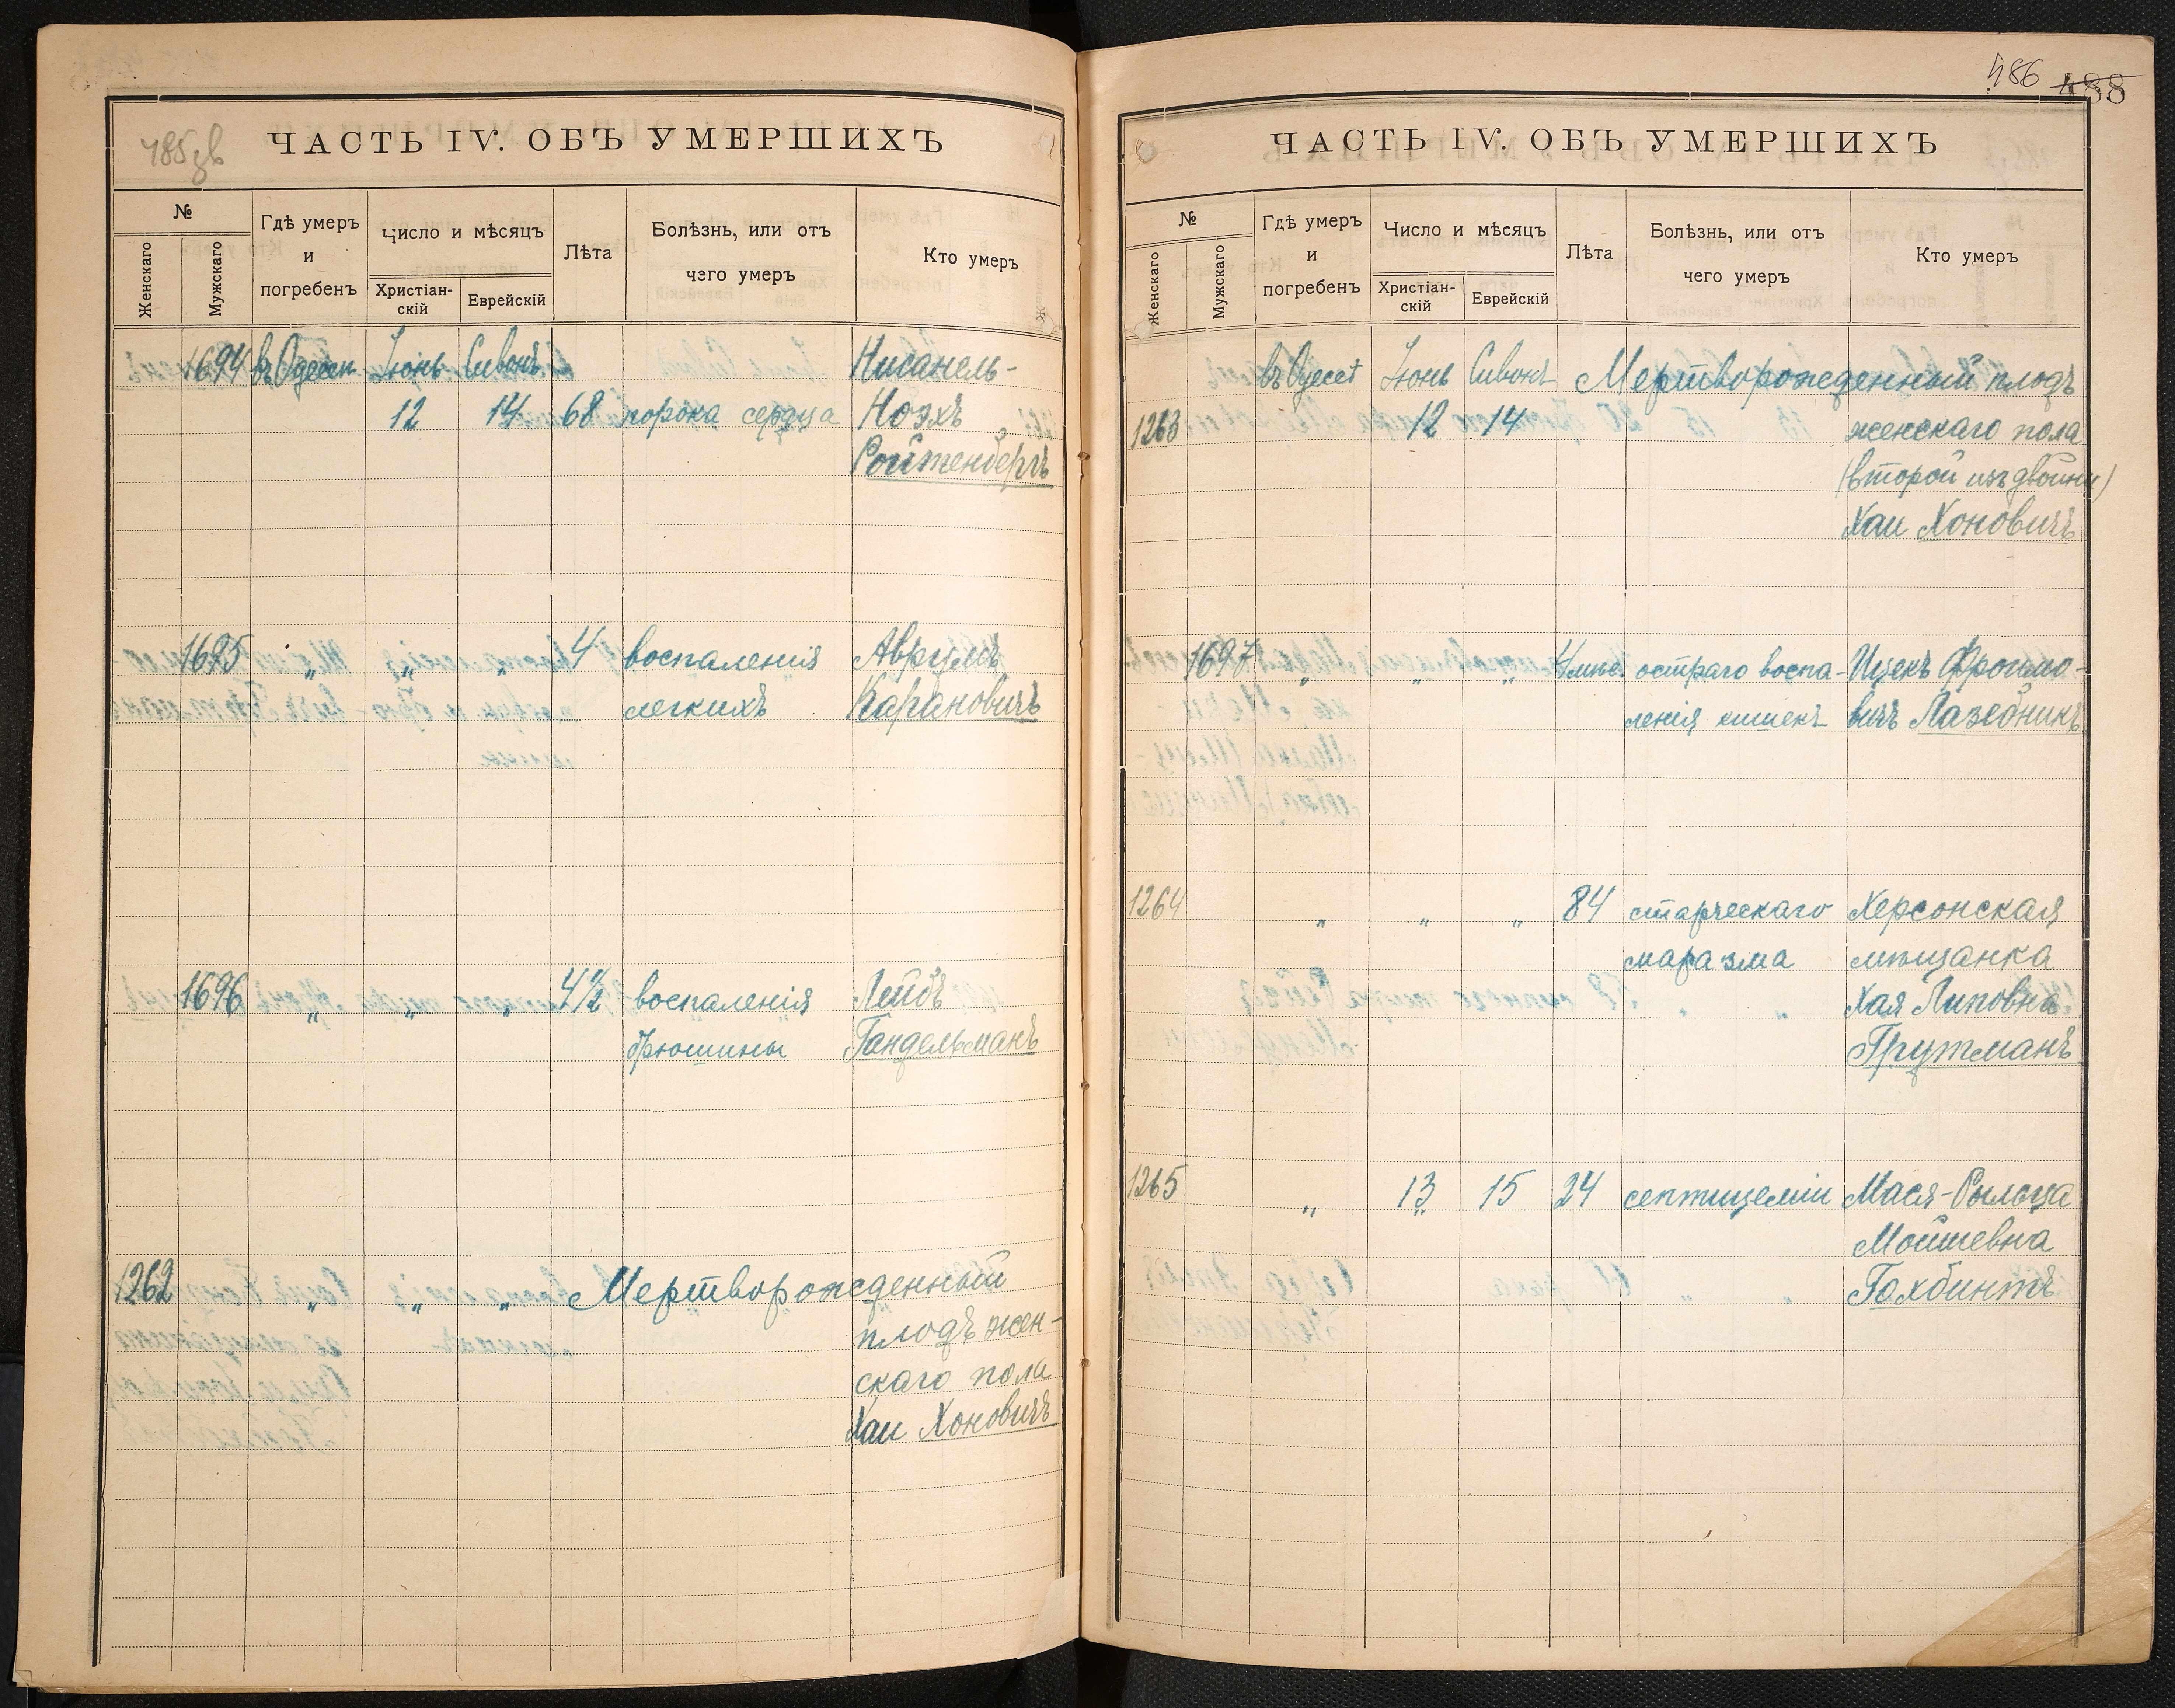 485зв
ЧАСТЬ IV. ОБЪ УМЕРШИХЪ
№
Женскаго
Мужскаго
Гдѣ умеръ
и
погребенъ
Число и мѣсяцъ
Христіан-
скій
Еврейскій
Лѣта
Болѣзнь, или отъ
чего умеръ
Кто умеръ
1694 въ Одессѣ Іюнь Сивонъ Нисанель-
12 14 68 порока сердца Ноэхъ
Ройтенбергъ
1695 „ „ „ 4 воспаленія Аврумъ
легкихъ Карановичъ
1696 „ „ „ 4½ воспаленія Лейбъ
брюшины Гандельманъ
1262 „ „ „ Мертворожденный
плодъ жен-
скаго пола
Хаи Хоновичъ
486 488
ЧАСТЬ IV. ОБЪ УМЕРШИХЪ
№
Женскаго
Мужскаго
Гдѣ умеръ
и
погребенъ
Число и мѣсяцъ
Христіан-
скій
Еврейскій
Лѣта
Болѣзнь, или отъ
чего умеръ
Кто умеръ
въ Одессѣ Іюнь Сивонъ Мертворожденный плодъ
1263 12 14 женскаго пола
(второй изъ двойни)
Хаи Хоновичъ
1697 „ „ „ остраго воспа- Ицекъ Фроимо-
ленія кишекъ вичъ Лазебникъ
1264 „ „ „ 84 старческаго Херсонская
маразма мѣщанка
Хая Липовна
Трутманъ
1265 „ 13 15 24 септицеміи Мася-Рыльца
Мойшевна
Гохбинтъ